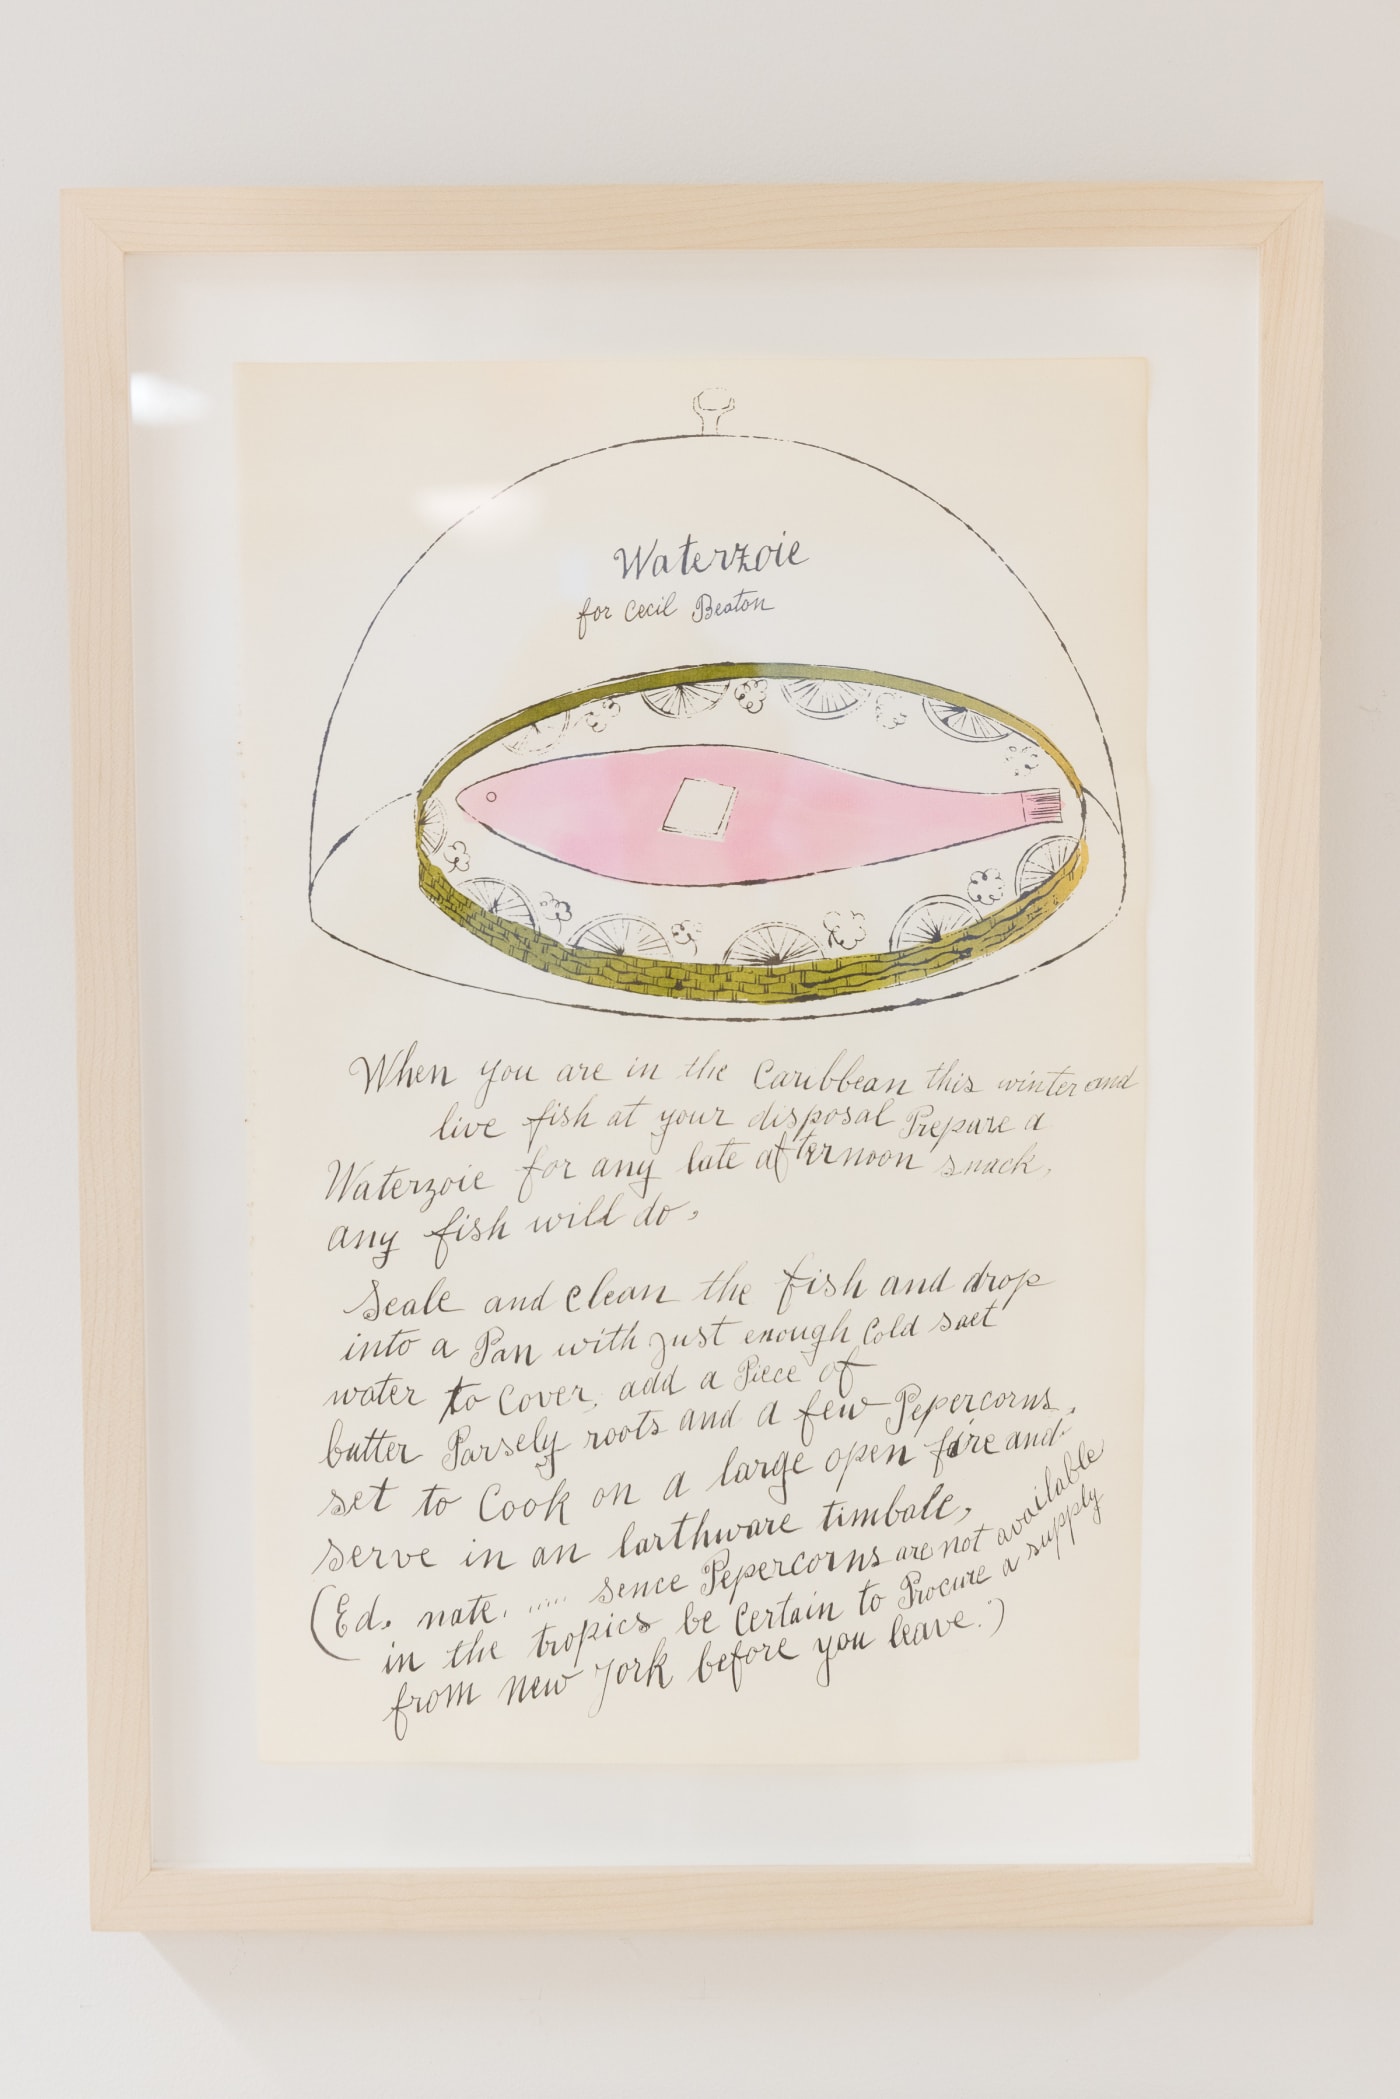 Waterzoie
for Cecil Beaton
When you are in the Caribbean this winter and
live fish at your disposal Prepare a
Waterzoie for any late afternoon snack,
any fish will do,
Scale and clean the fish and drop
into a Pan with just enough Cold salt
water to Cover, add a Piece of
butter Parsely roots and a few Pepercorns,
set to Cook on a large open fire and
serve in an Earthware timbale,
(Ed. note. ..... sence Pepercorns are not available
in the tropics be Certain to Procure a supply
from New York before you leave.)